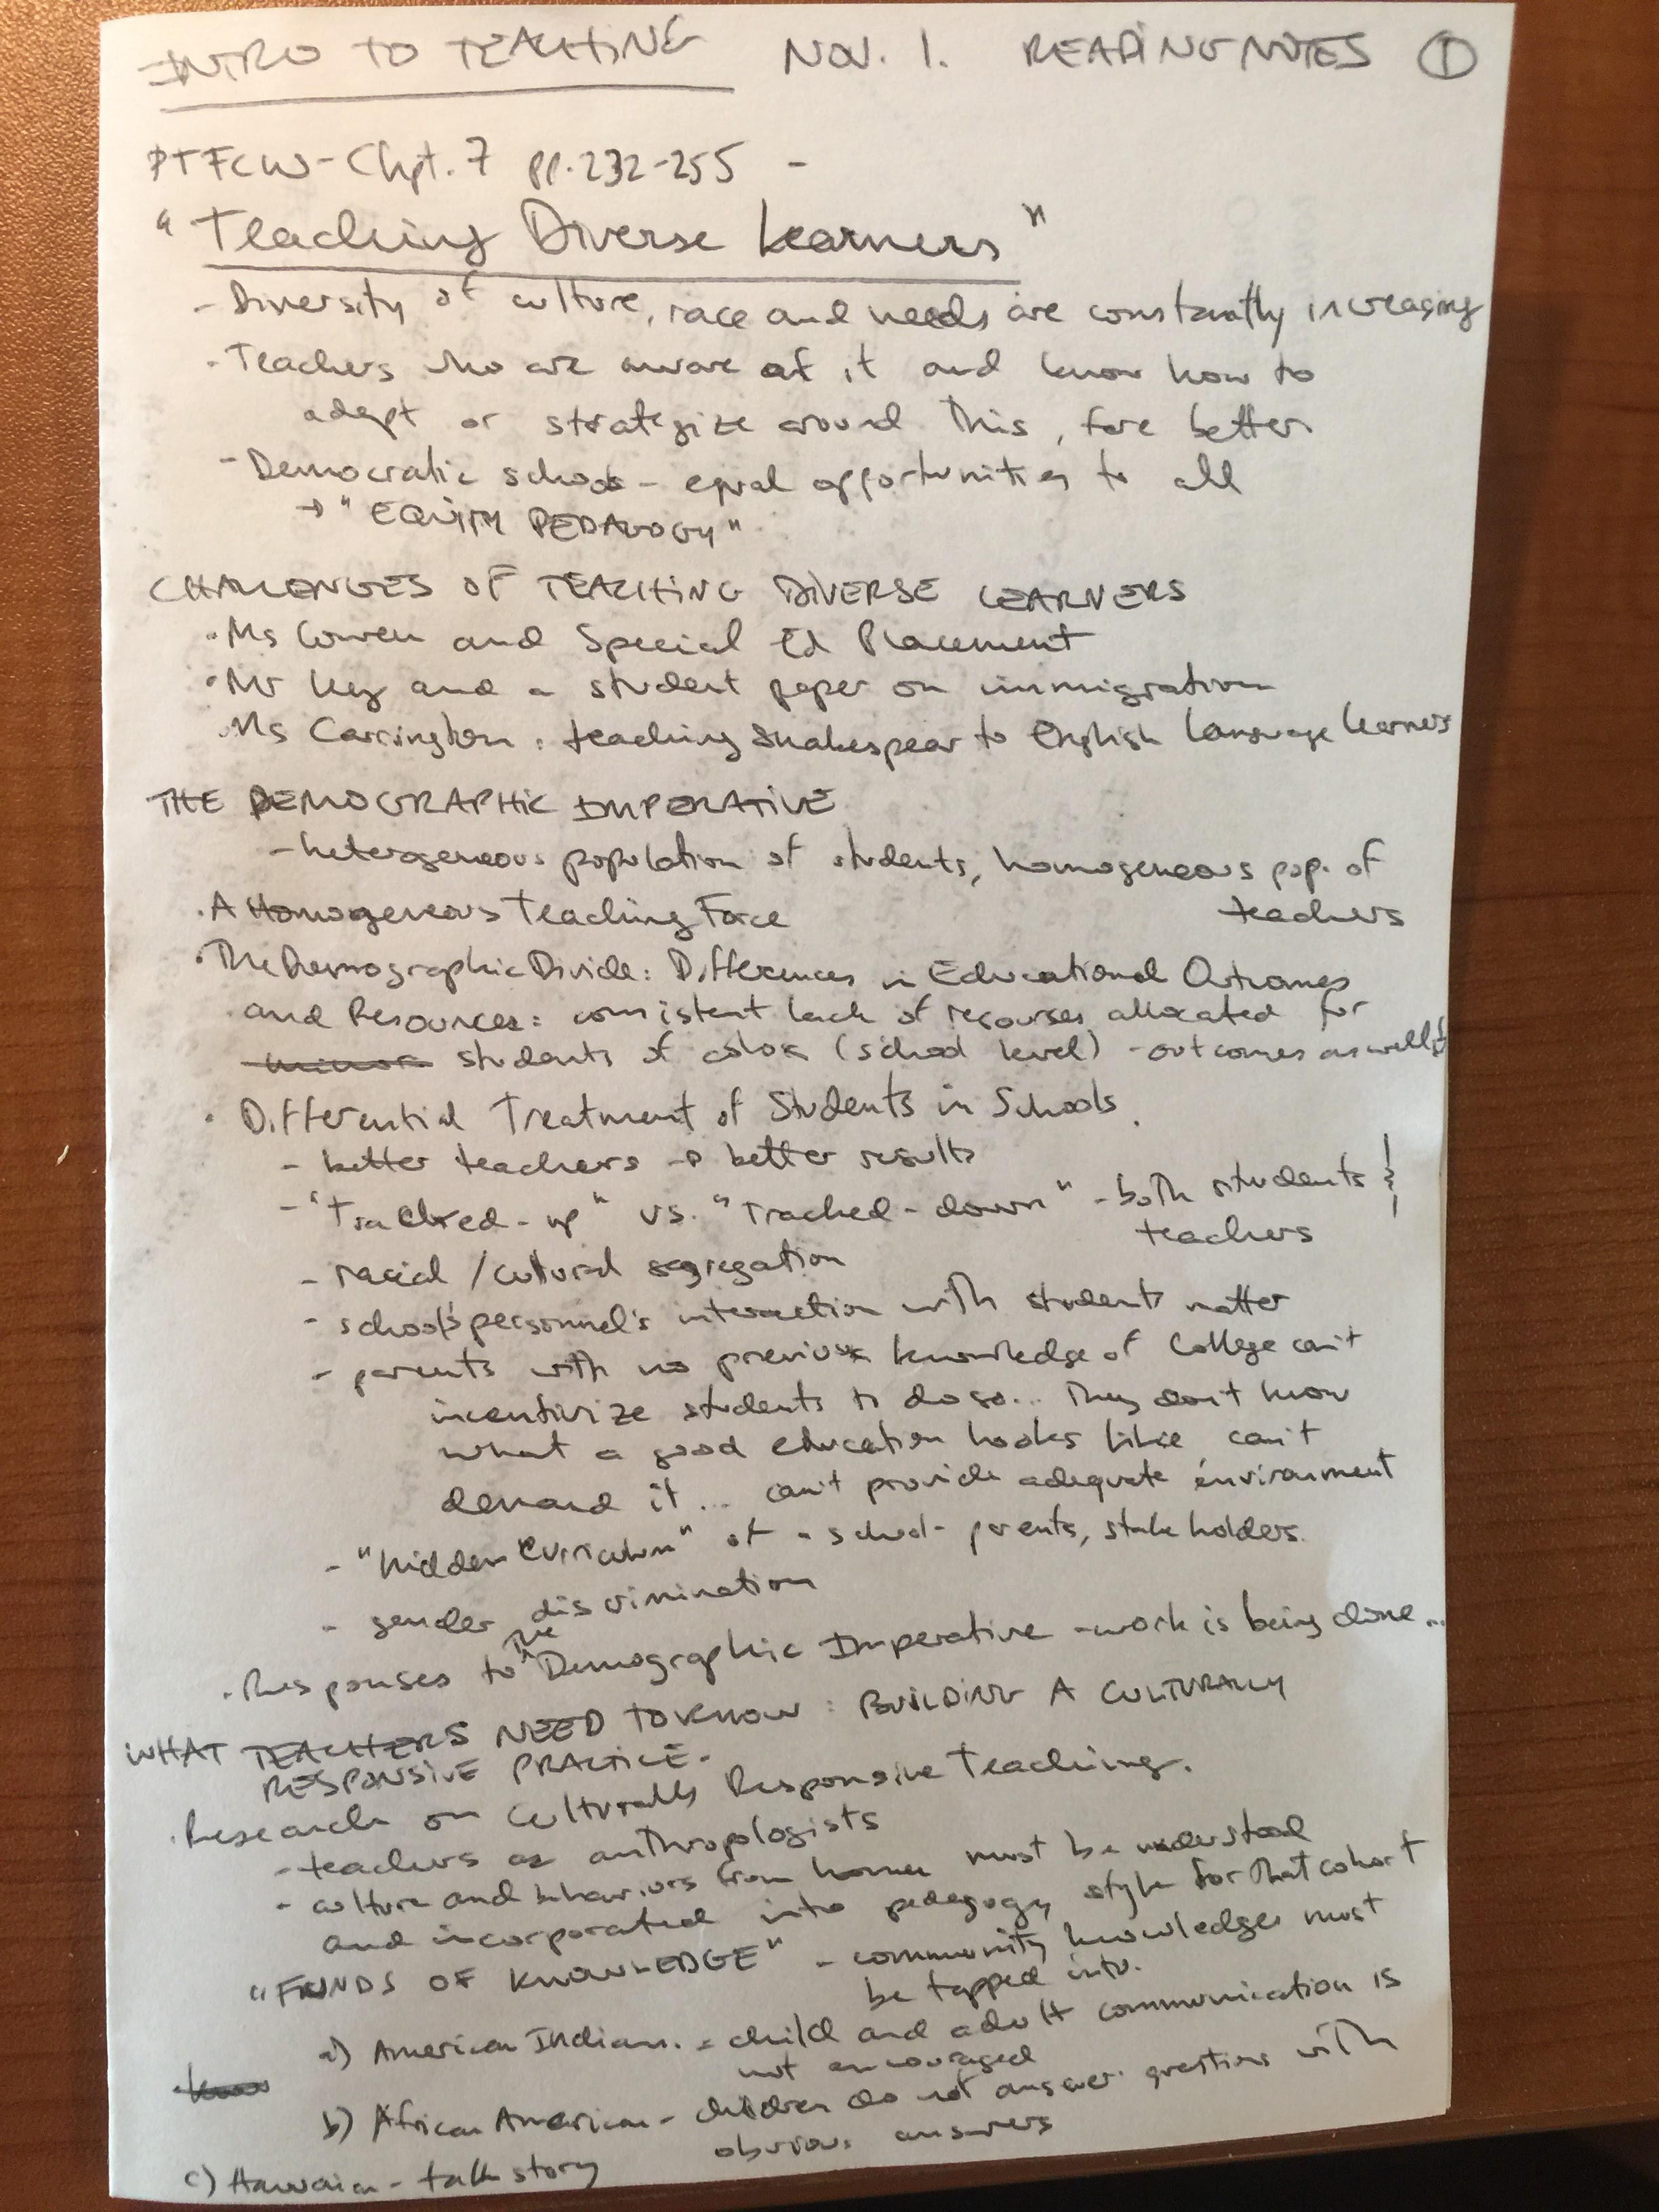 INTRO TO TEACHING NOV. 1. READING NOTES 1
PTFCW - Chpt. 7 pp. 232-255 -
"Teaching Diverse Learners"
- Diversity of culture, race and needs are constantly increasing
- Teachers who are aware of it and know how to
adapt or strategize around this, fare better
- Democratic schools - equal opportunities to all
→ "EQUITY PEDAGOGY"
CHALLENGES OF TEACHING DIVERSE LEARNERS
• Ms Cowen and Special Ed Placement
• Mr Key and a student paper on immigration
• Ms Carrington: teaching Shakespear to English Language Learners
THE DEMOGRAPHIC IMPERATIVE
- heterogeneous population of students, homogeneous pop. of
teachers
• A Homogeneous Teaching Force
• The Demographic Divide: Differences in Educational Outcomes
and Resources: consistent lack of resourses allocated for
students of color (school level) - outcomes as well
• Differential Treatment of Students in Schools.
- better teachers → better results
- "Tracked-up" vs. "Tracked-down" - both students &
teachers
- racial / cultural segregation
- school's personnel's interaction with students matter
- parents with no previous knowledge of College can't
incentivize students to do so... They don't know
what a good education looks like can't
demand it... can't provide adequate environment
- "hidden curriculum" of a school - parents, stakeholders.
- gender discrimination
• Responses to the Demographic Imperative - work is being done...
WHAT TEACHERS NEED TO KNOW: BUILDING A CULTURALLY
RESPONSIVE PRACTICE.
• Research on Culturally Responsive Teaching.
- teachers as anthropologists
- culture and behaviors from home must be understood
and incorporated into pedagogy style for that cohort
"FUNDS OF KNOWLEDGE" - community knowledge must
be tapped into.
a) American Indian. = child and adult communication is
not encouraged
b) African American - children do not answer questions with
obvious answers
c) Hawaian - talk story